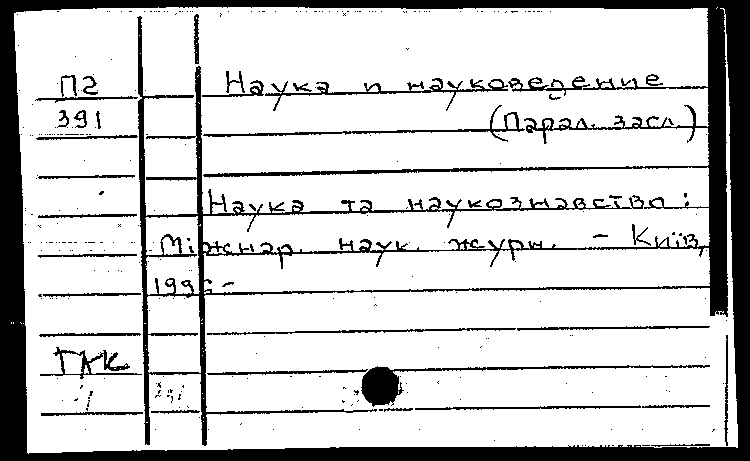 П2 Наука и науковедение
391 (Парал. засл.)
Наука та наукознавство:
Міжнар. наук. журн. – Київ,
199 –
ГАК